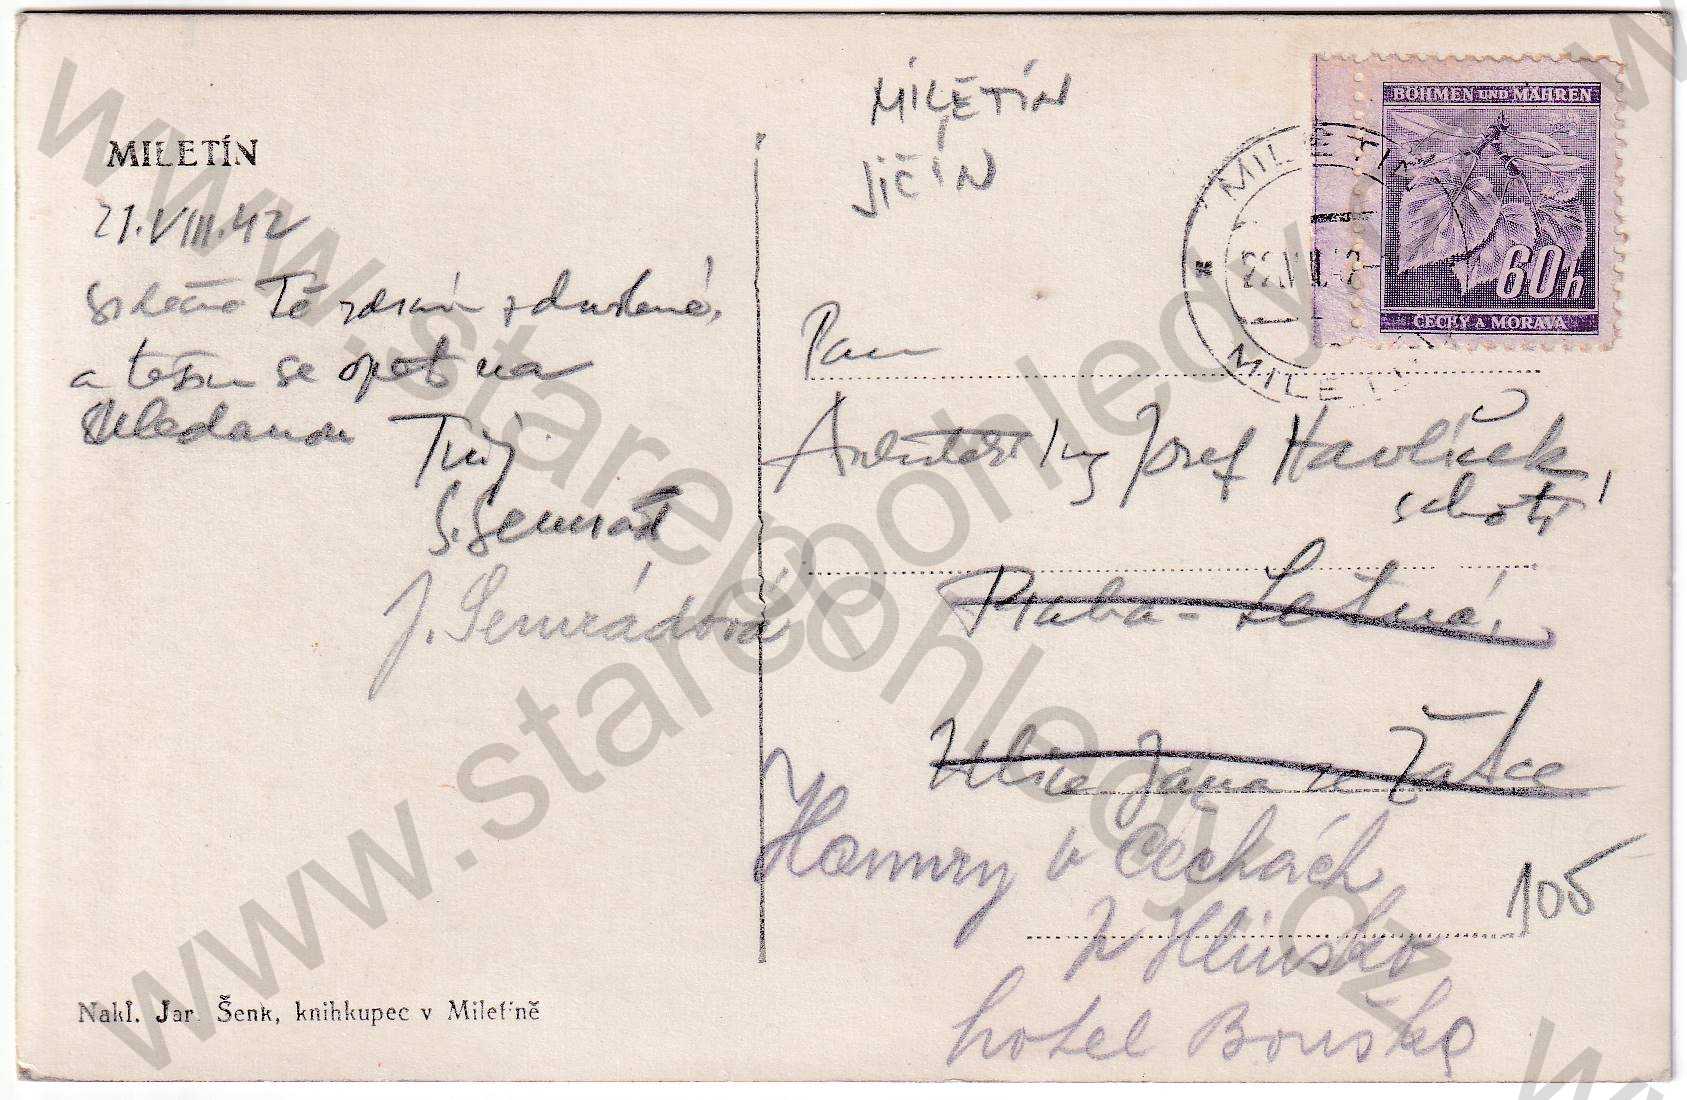 MILETÍN
21.VIII.42
srdečně Tě zdravím
a těším se opět na
shledanou Tvůj
S. Semrád
J. Semrádová
Nakl. Jar. Šenk, knihkupec v Miletíně
MILETÍN
JIČÍN
BÖHMEN UND MÄHREN
60h
ČECHY A MORAVA
MILETÍN
MILETÍN
Pan
Architekt Ing Josef Havlíček,
Praha - Letná,
Ulice Jana ze Žatce
Hamry v Čechách
Hlinsko
hotel Bouška
105
www.starepohledy.cz
www.starepohledy.cz